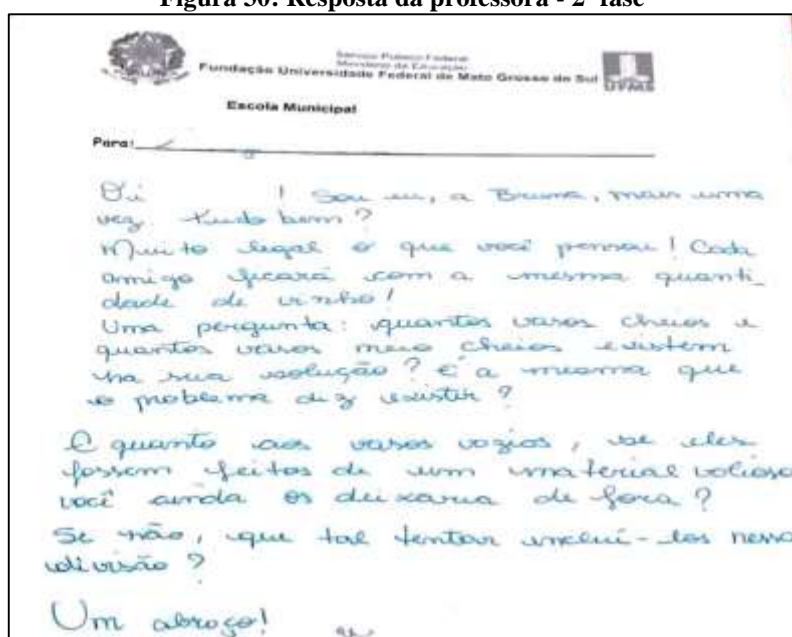 Figura 30: Resposta da professora - 2ª fase
Serviço Público Federal
Ministério da Educação
Fundação Universidade Federal de Mato Grosso do Sul
UFMS
Escola Municipal
Para:
Oi ! Sou eu, a Bruna, mais uma
vez. Tudo bem?
Muito legal o que você pensou! Cada
amigo ficará com a mesma quanti_
dade de vinho!
Uma pergunta: quantos vasos cheios e
quantos vasos meio cheios existem
na sua solução? É a mesma que
o problema diz existir?
E quanto aos vasos vazios, se eles
fossem feitos de um material valioso
você ainda os deixaria de fora?
Se não, que tal tentar incluí-los nessa
divisão?
Um abraço!